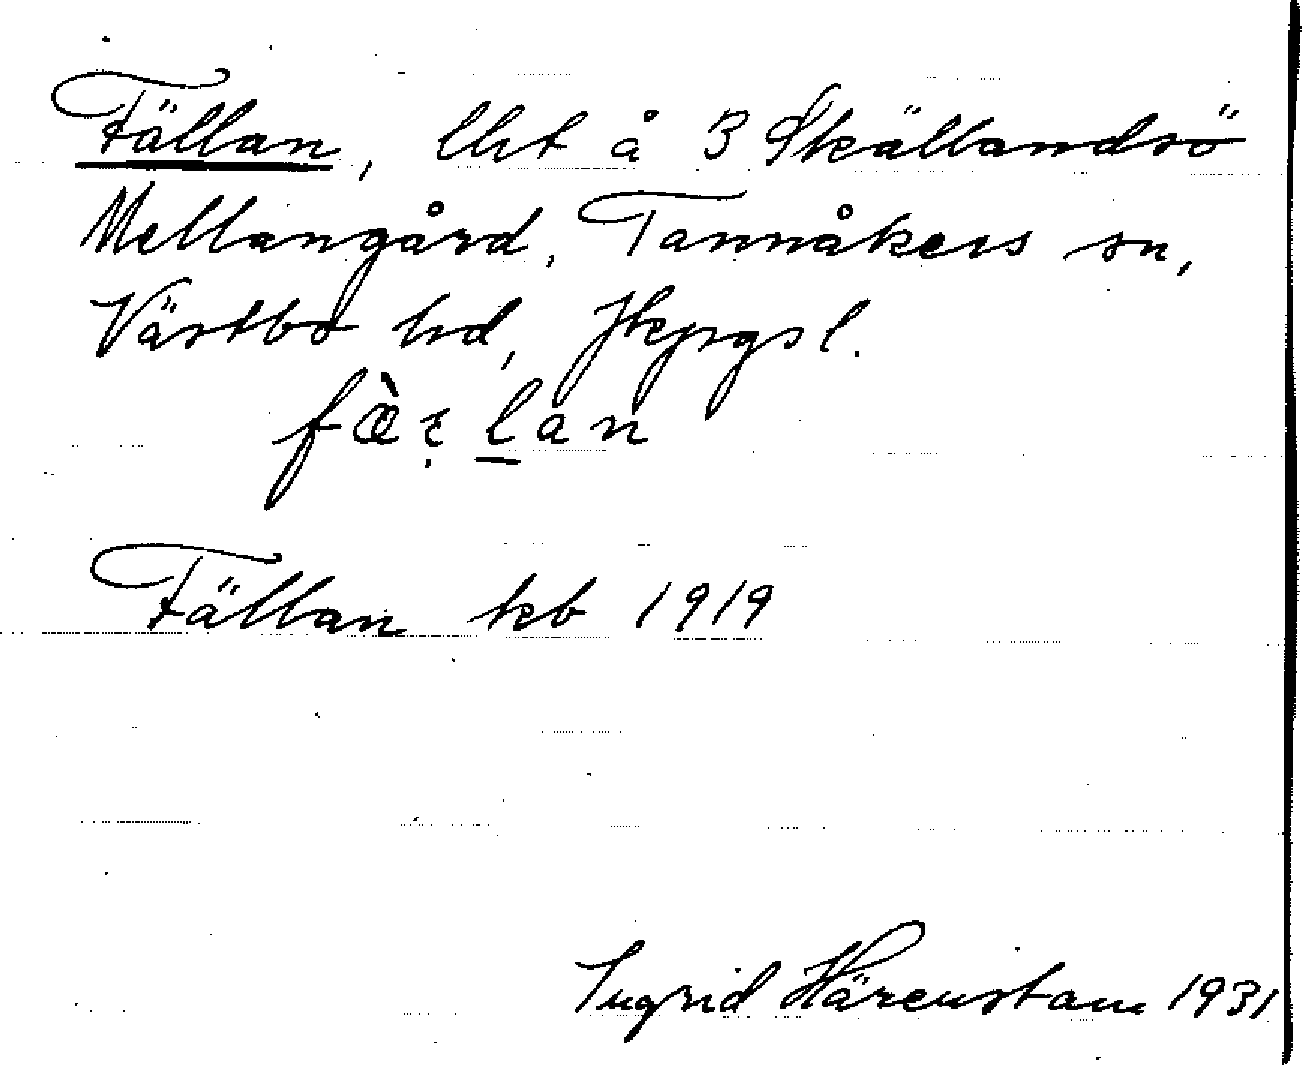 Fällan, lht å 3 Skällandsö
Mellangård, Tannåkers sn,
Västbo hd, Jkpgsl.
fæ̀ꞇ lan
Fällan kb 1919
Ingrid Härenstam 1931